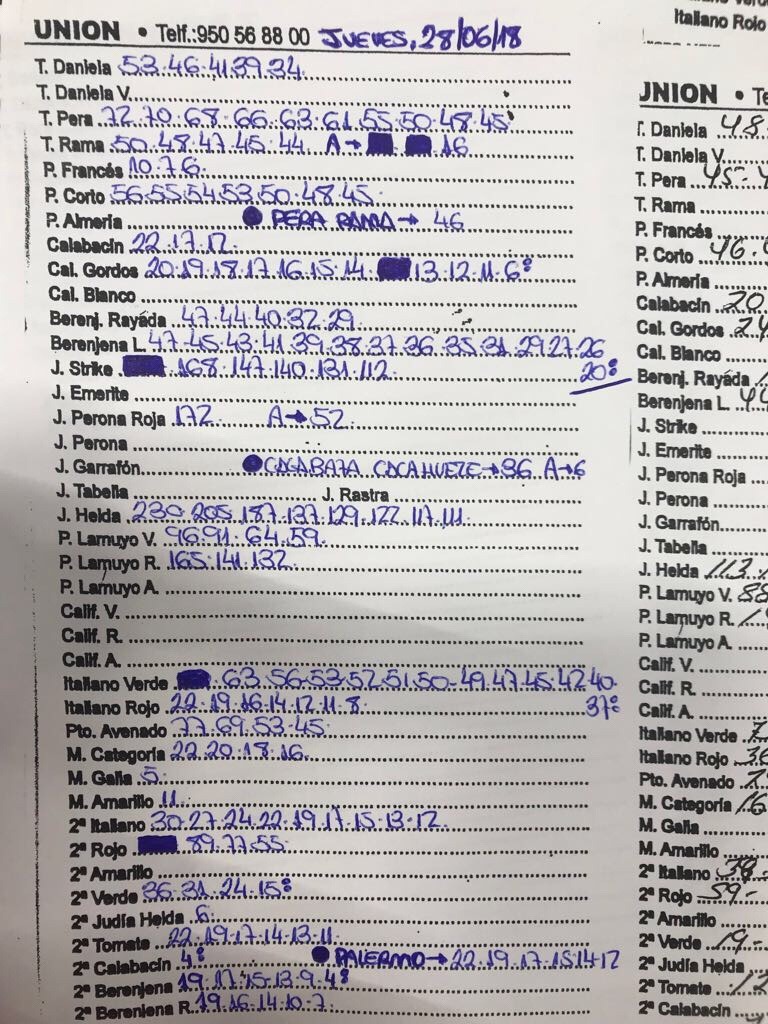 UNION • Telf.:950 56 88 00 JUEVES, 28/06/18
T. Daniela 53·46·41·39·34
T. Daniela V.
T. Pera 72·70·68·66·63·61·55·50·48·45
T. Rama 50·48·47·45·44 A→ 16
P. Francés 10·7·6
P. Corto 56·55·54·53·50·48·45
P. Almería PERA RAMA→ 46
Calabacín 22·17·12
Cal. Gordos 20·19·18·17·16·15·14 13·12·11·6
Cal. Blanco
Berenj. Rayáda 47·44·40·32·29
Berenjena L. 47·45·43·41·39·38·37·36·35·31·29·27·26
20
J. Strike 168·147·140·131·112
J. Emerite
J. Perona Roja 172 A→52
J. Perona
J. Garrafón CASABAZA CACAHUETE→86 A→6
J. Tabella J. Rastra
J. Helda 230·205·187·137·129·122·117·111
P. Lamuyo V. 96·91·64·59
P. Lamuyo R. 165·141·132
P. Lamuyo A.
Calif. V.
Calif. R.
Calif. A.
Italiano Verde 63·56·53·52·51·50·49·47·45·42·40
37
Italiano Rojo 22·19·16·14·12·11·8
Pto. Avenado 77·69·53·45
M. Categoría 22·20·18·16
M. Galia 5
M. Amarillo 11
2ª Italiano 30·27·24·22·19·17·15·13·12
2ª Rojo 89·77·55
2ª Amarillo
2ª Verde 36·31·24·15
2ª Judía Helda 6
2ª Tomate 22·19·17·14·13·11
2ª Calabacín 4 PALERMO→22·19·17·15·14·12
2ª Berenjena 19·17·15·13·9·4
2ª Berenjena R. 19·16·14·10·7
Italiano Rojo
UNION • Te
T. Daniela 48
T. Daniela V.
T. Pera 45-4
T. Rama
P. Francés
P. Corto 46
P. Almería
Calabacín 20
Cal. Gordos 24
Cal. Blanco
Berenj. Rayáda
Berenjena L. 44
J. Strike
J. Emerite
J. Perona Roja
J. Perona
J. Garrafón
J. Tabella
J. Helda 113
P. Lamuyo V. 88
P. Lamuyo R.
P. Lamuyo A.
Calif. V.
Calif. R.
Calif. A.
Italiano Verde
Italiano Rojo
Pto. Avenado
M. Categoría 16
M. Galia
M. Amarillo
2ª Italiano
2ª Rojo 59-
2ª Amarillo
2ª Verde 19-
2ª Judía Helda
2ª Tomate 12
2ª Calabacín